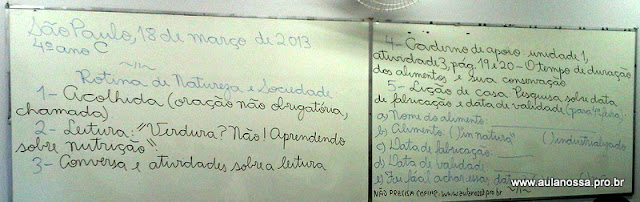 São Paulo, 18 de março de 2013
4º ano C
~//~
Rotina de Natureza e Sociedade
1- Acolhida (oração não obrigatória,
chamada)
2- Leitura: "Verdura? Não! Aprendendo
sobre nutrição".
3- Conversa e atividades sobre a leitura
4- Caderno de apoio - unidade 1,
atividade 3, pág. 19 e 20 - O tempo de duração
dos alimentos e sua conservação
5- Lição de casa: Pesquisa sobre data
de fabricação e data de validade (para 4ª feira)
a) Nome do alimento:
b) Alimento: ( ) in natura ( ) industrializado
c) Data de fabricação:
d) Data de validade:
e) Foi fácil achar essa
NÃO PRECISA COPIAR: www.aulanossa.pro.br
www.aulanossa.pro.br